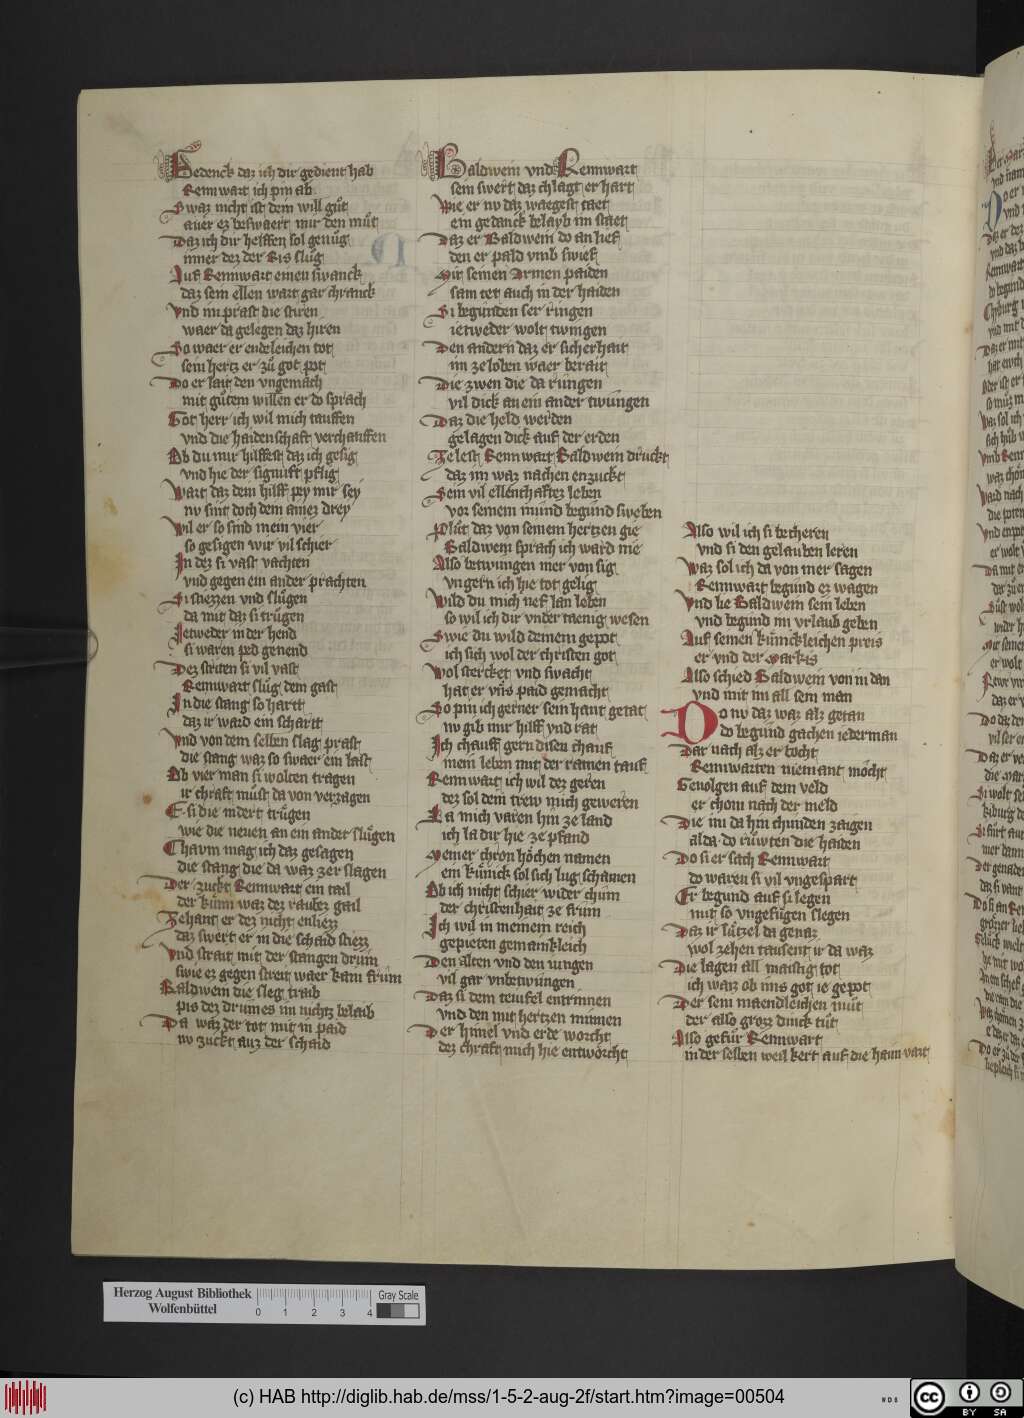 Gedenck daz ich dir gedient hab
Rennwart ich pin ab
Swaz nicht ist dem will gůt
auer ez beswaert mir den můt
Daz ich dir helffen sol genůg
immer dez der Ris slůg
Auf Rennwart einen swanck
daz sein ellen wart gar chranck
Vnd im prast die stiren
waer da gelegen daz hiren
So waer er endeleichen tot
sein hertz er zů got pot
Do er lait den vngemach
mit gůtem willen er do sprach
Got herr ich wil mich tauffen
vnd die haidenschaft verchauffen
Ob du mir hilffest daz ich gesig
vnd hie der signuft pflig
Wart daz dem hilff pey mir sey
nv sint doch dem ainez drey
Wil er so sind mein vier
so gesigen wir vil schier
In dez si vast vachten
vnd gegen ein ander prachten
Si stiezzen vnd slůgen
da mit daz si trůgen
Ietweder in der hend
si waren ped genend
Dez striten si vil vast
Rennwart slůg dem gast
In die stang so hartt
daz ir ward ein schartt
Vnd von dem selben slag prast
die stang waz so swaer ein last
Ob vier man si wolten tragen
ir chraft můst da von verzagen
E si die indert trůgen
wie die neuen an ein ander slůgen
Chaum mag ich daz gesagen
die stang die da waz zer slagen
Der zuckt Rennwart ein tail
der künn waz dez raubez gail
Zehant er dez nicht enliezz
daz swert er in die schaid stiezz
Vnd strait mit der stangen drům
swie ez gegen streit waer kain frům
Baldwein die sleg traib
pis dez drumes im nichtz belaib
Da waz der tot mit in paid
nv zuckt auz der schaid
Baldwein vnd Rennwart
sein swert daz chlagt er hart
Wie er nv daz waegest taet
ein gedanck belayb im staet
Daz er Baldwein do an lief
den er pald vmb swief
Mit seinen Armen paiden
sam tet auch in der haiden
Si begunden ser ringen
ietweder wolt twingen
Den andern daz er sicherhait
im ze loben waer berait
Die zwen die da rungen
vil dick an ein ander twungen
Daz die held werden
gelagen dick auf der erden
Ze lest Rennwart Baldwein drůckt
daz im waz nachen enzuckt
Sein vil ellenthaftez leben
vor seinem mund begund sweben
Plůt daz von seinem hertzen gie
Baldwein sprach ich ward nie
Also betwungen mer von sig
vngern ich hie tot gelig
Wild du mich nef lan leben
so wil ich dir vnder taenig wesen
Swie du wild deinem gepot
ich sich wol der christen got
Wol stercket vnd swacht
hat er vns paid gemacht
So pin ich gerner sein hant getat
nv gib mir hilff vnd rat
Ich chauff gern disen chauf
mein leben mit der rainen tauf
Rennwart ich wil dez geren
dez sol dem trew mich geweren
La mich varen hin ze land
ich la dir hie ze pfand
Meiner chron höchen namen
ein künick sol sich lug schamen
Ob ich nicht schier wider chum
der christenhait ze frům
Ich wil in meinem reich
gepieten gemainkleich
Den alten vnd den iungen
vil gar vnbetwungen
Daz si dem teufel entrinnen
vnd den mit hertzen minnen
Der himel vnd erde worcht
dez chraft mich hie entworcht
Also wil ich si becheren
vnd si den gelauben leren
Waz sol ich da von mer sagen
Rennwart begund ez wagen
Vnd lie Baldwein sein leben
vnd begund im vrlaub geben
Auf seinen künckleichen preis
er vnd der Markis
Also schied Baldwein von in dan
vnd mit im all sein man
Do nv daz waz alz getan
do begund gachen iederman
Dar nach alz er tocht
Rennwarten niemant mocht
Geuolgen auf dem veld
er chom nach der meld
Die im da hin chunden zaigen
alda do růwten die haiden
Do si er sach Rennwart
do waren si vil vngespart
Er begund auf si legen
mit so vngefügen slegen
Daz ir lützel da genaz
wol zehen tausent ir da waz
Die lagen all maistig tot
ich waiz ob ims got ie gepot
Der sein maendleichen můt
der also grozz dinck tůt
Also gefůr Rennwart
in der selben weil kert auf die hain vart
Herzog August Bibliothek
Wolfenbüttel
0 1 2 3 4
Gray Scale
(c) HAB http://diglib.hab.de/mss/1-5-2-aug-2f/start.htm?image=00504
cc BY SA